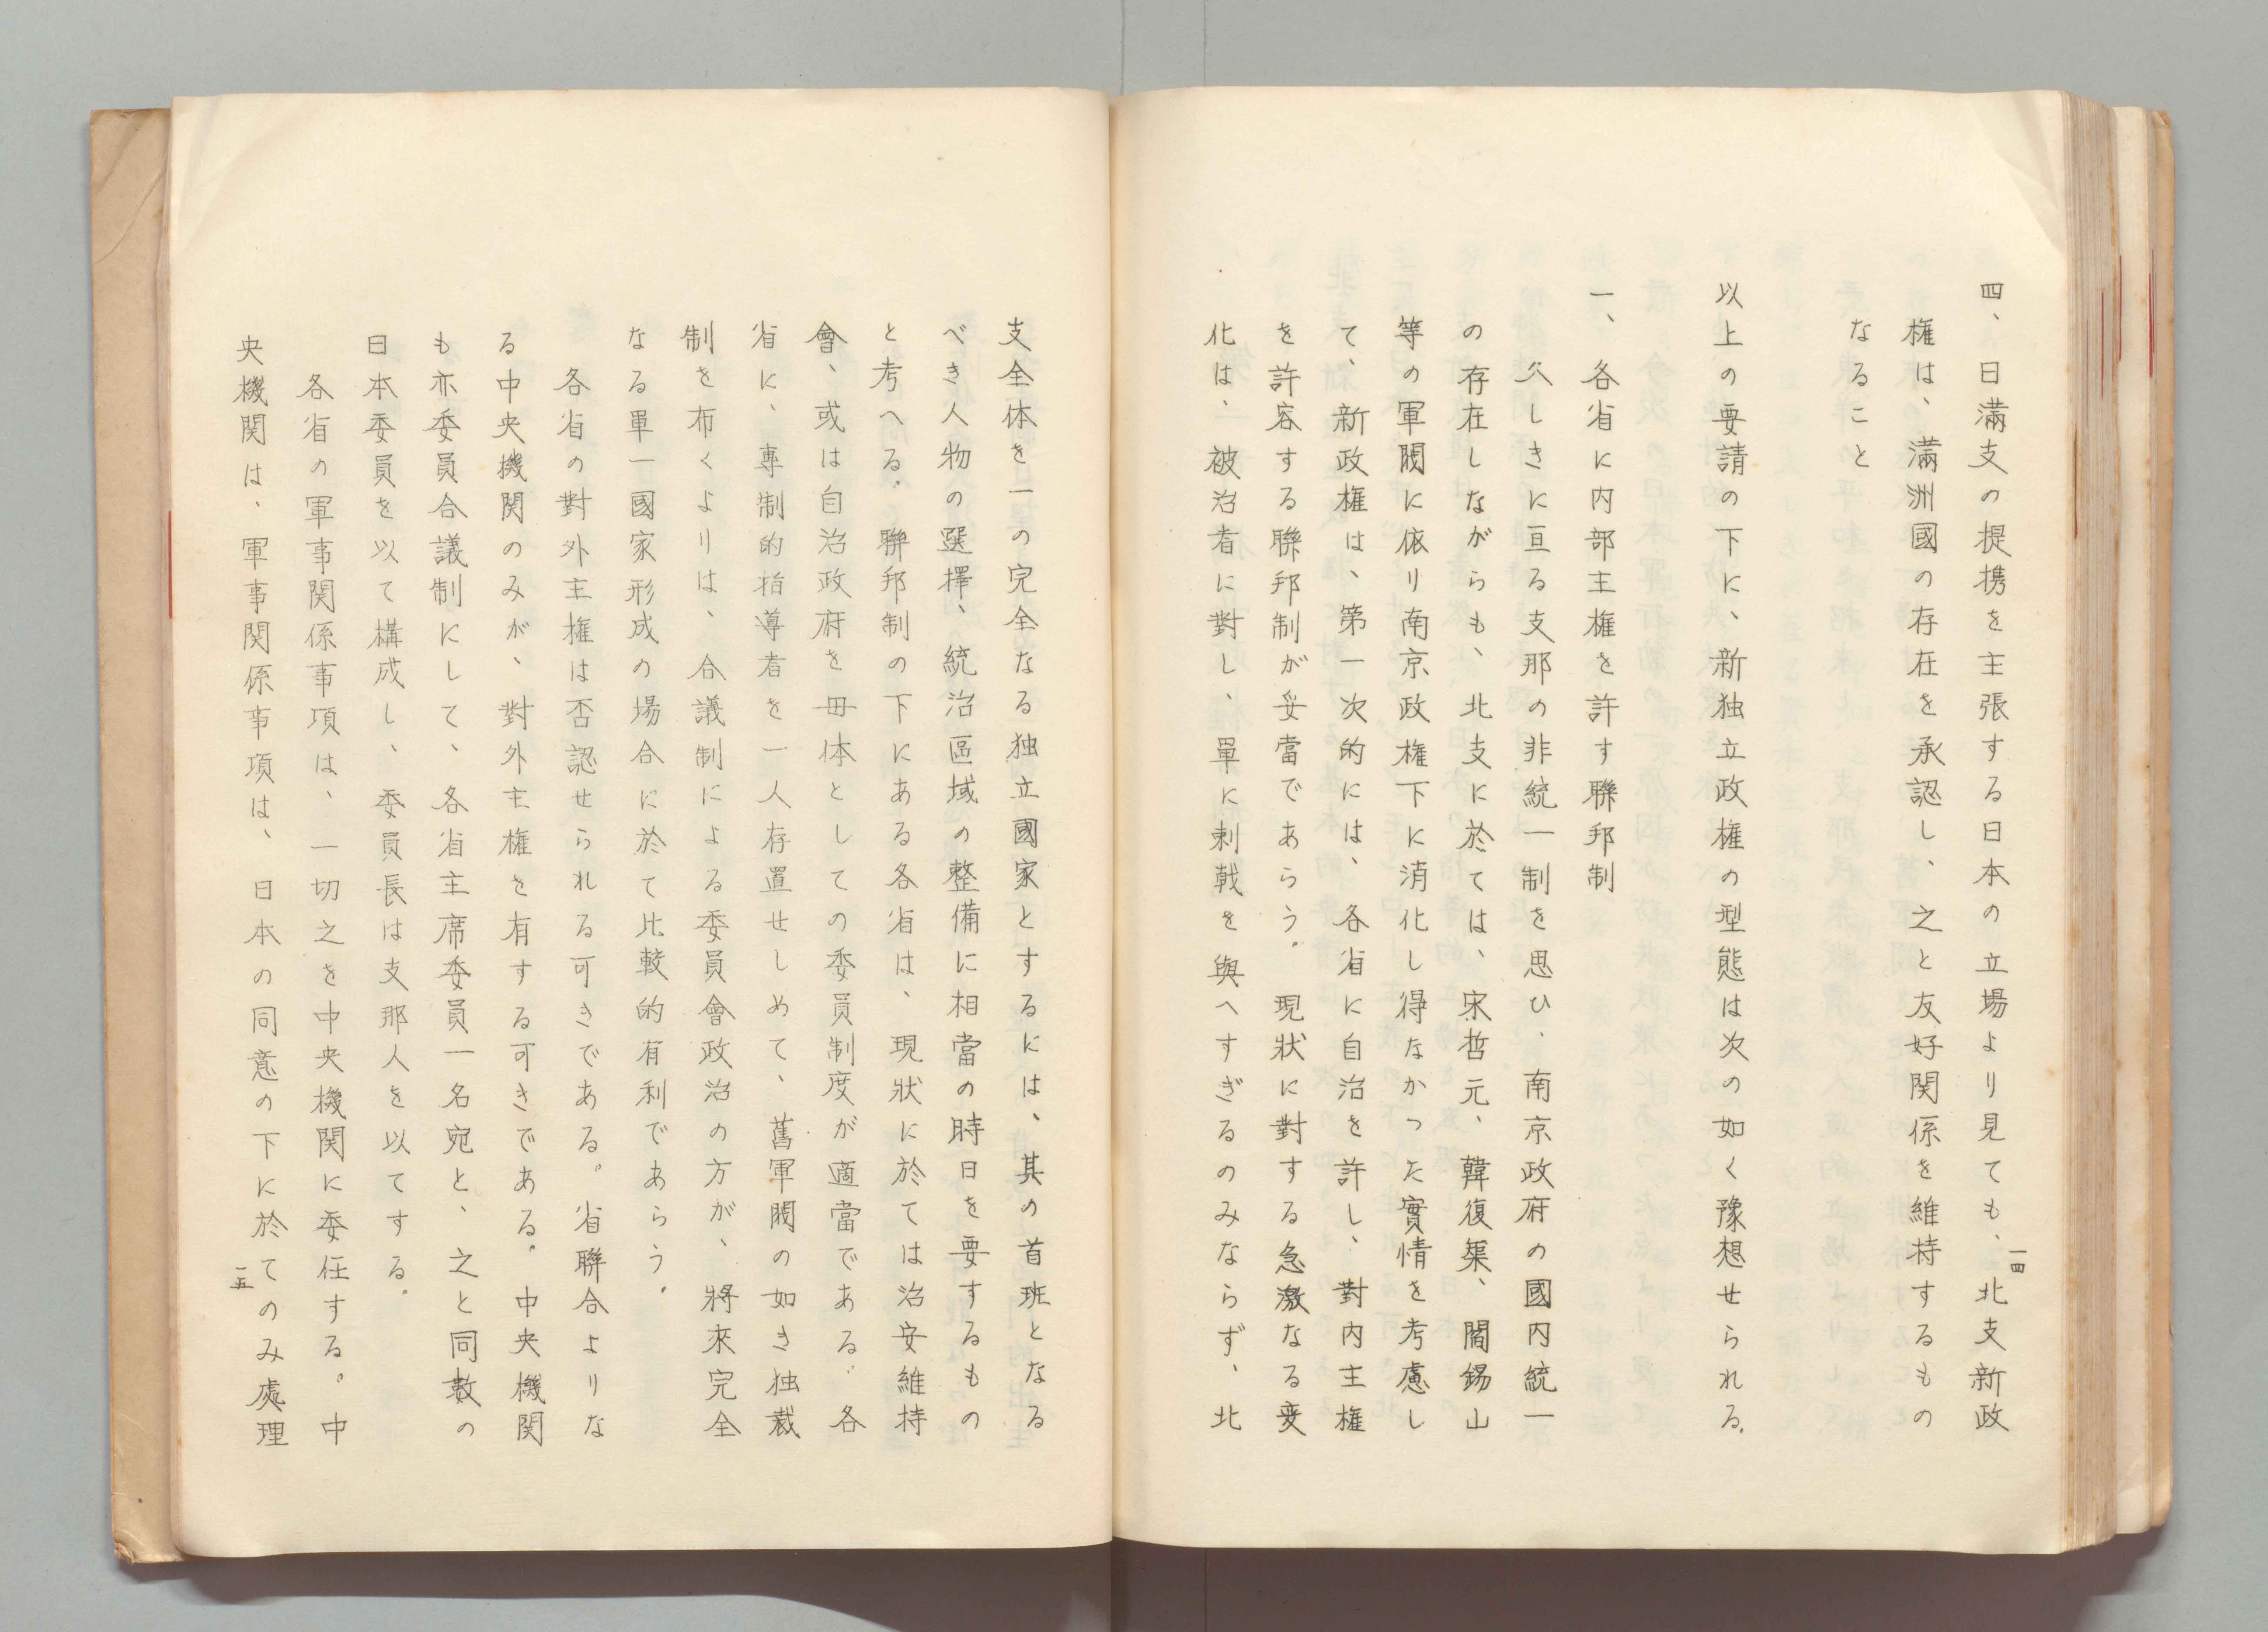 四、日滿支の提携を主張する日本の立場より見ても、北支新政
権は、滿洲國の存在を承認し、之と友好関係を維持するもの
なること
以上の要請の下に、新独立政権の型態は次の如く豫想せられる。
一、各省に内部主権を許す聯邦制
久しきに亘る支那の非統一制を思ひ、南京政府の國内統一
の存在しながらも、北支に於ては、宋哲元、韓復榘、閻錫山
等の軍閥に依り南京政権下に消化し得なかつた實情を考慮し
て、新政権は、第一次的には、各省に自治を許し、對内主権
を許容する聯邦制が妥當であらう。現狀に對する急激なる変
化は、被治者に對し、單に刺戟を與へすぎるのみならず、北
一四
支全体を一の完全なる独立國家とするには、其の首班となる
べき人物の選擇、統治區域の整備に相當の時日を要するもの
と考へる。聯邦制の下にある各省は、現狀に於ては治安維持
會、或は自治政府を母体としての委員制度が適當である。各
省に、専制的指導者を一人存置せしめて、舊軍閥の如き独裁
制を布くよりは、合議制による委員會政治の方が、將來完全
なる單一國家形成の場合に於て比較的有利であらう。
各省の對外主権は否認せられる可きである。省聯合よりな
る中央機関のみが、對外主権を有する可きである。中央機関
も亦委員合議制にして、各省主席委員一名宛と、之と同数の
日本委員を以て構成し、委員長は支那人を以てする。
各省の軍事関係事項は、一切之を中央機関に委任する。中
央機関は、軍事関係事項は、日本の同意の下に於てのみ處理
一五